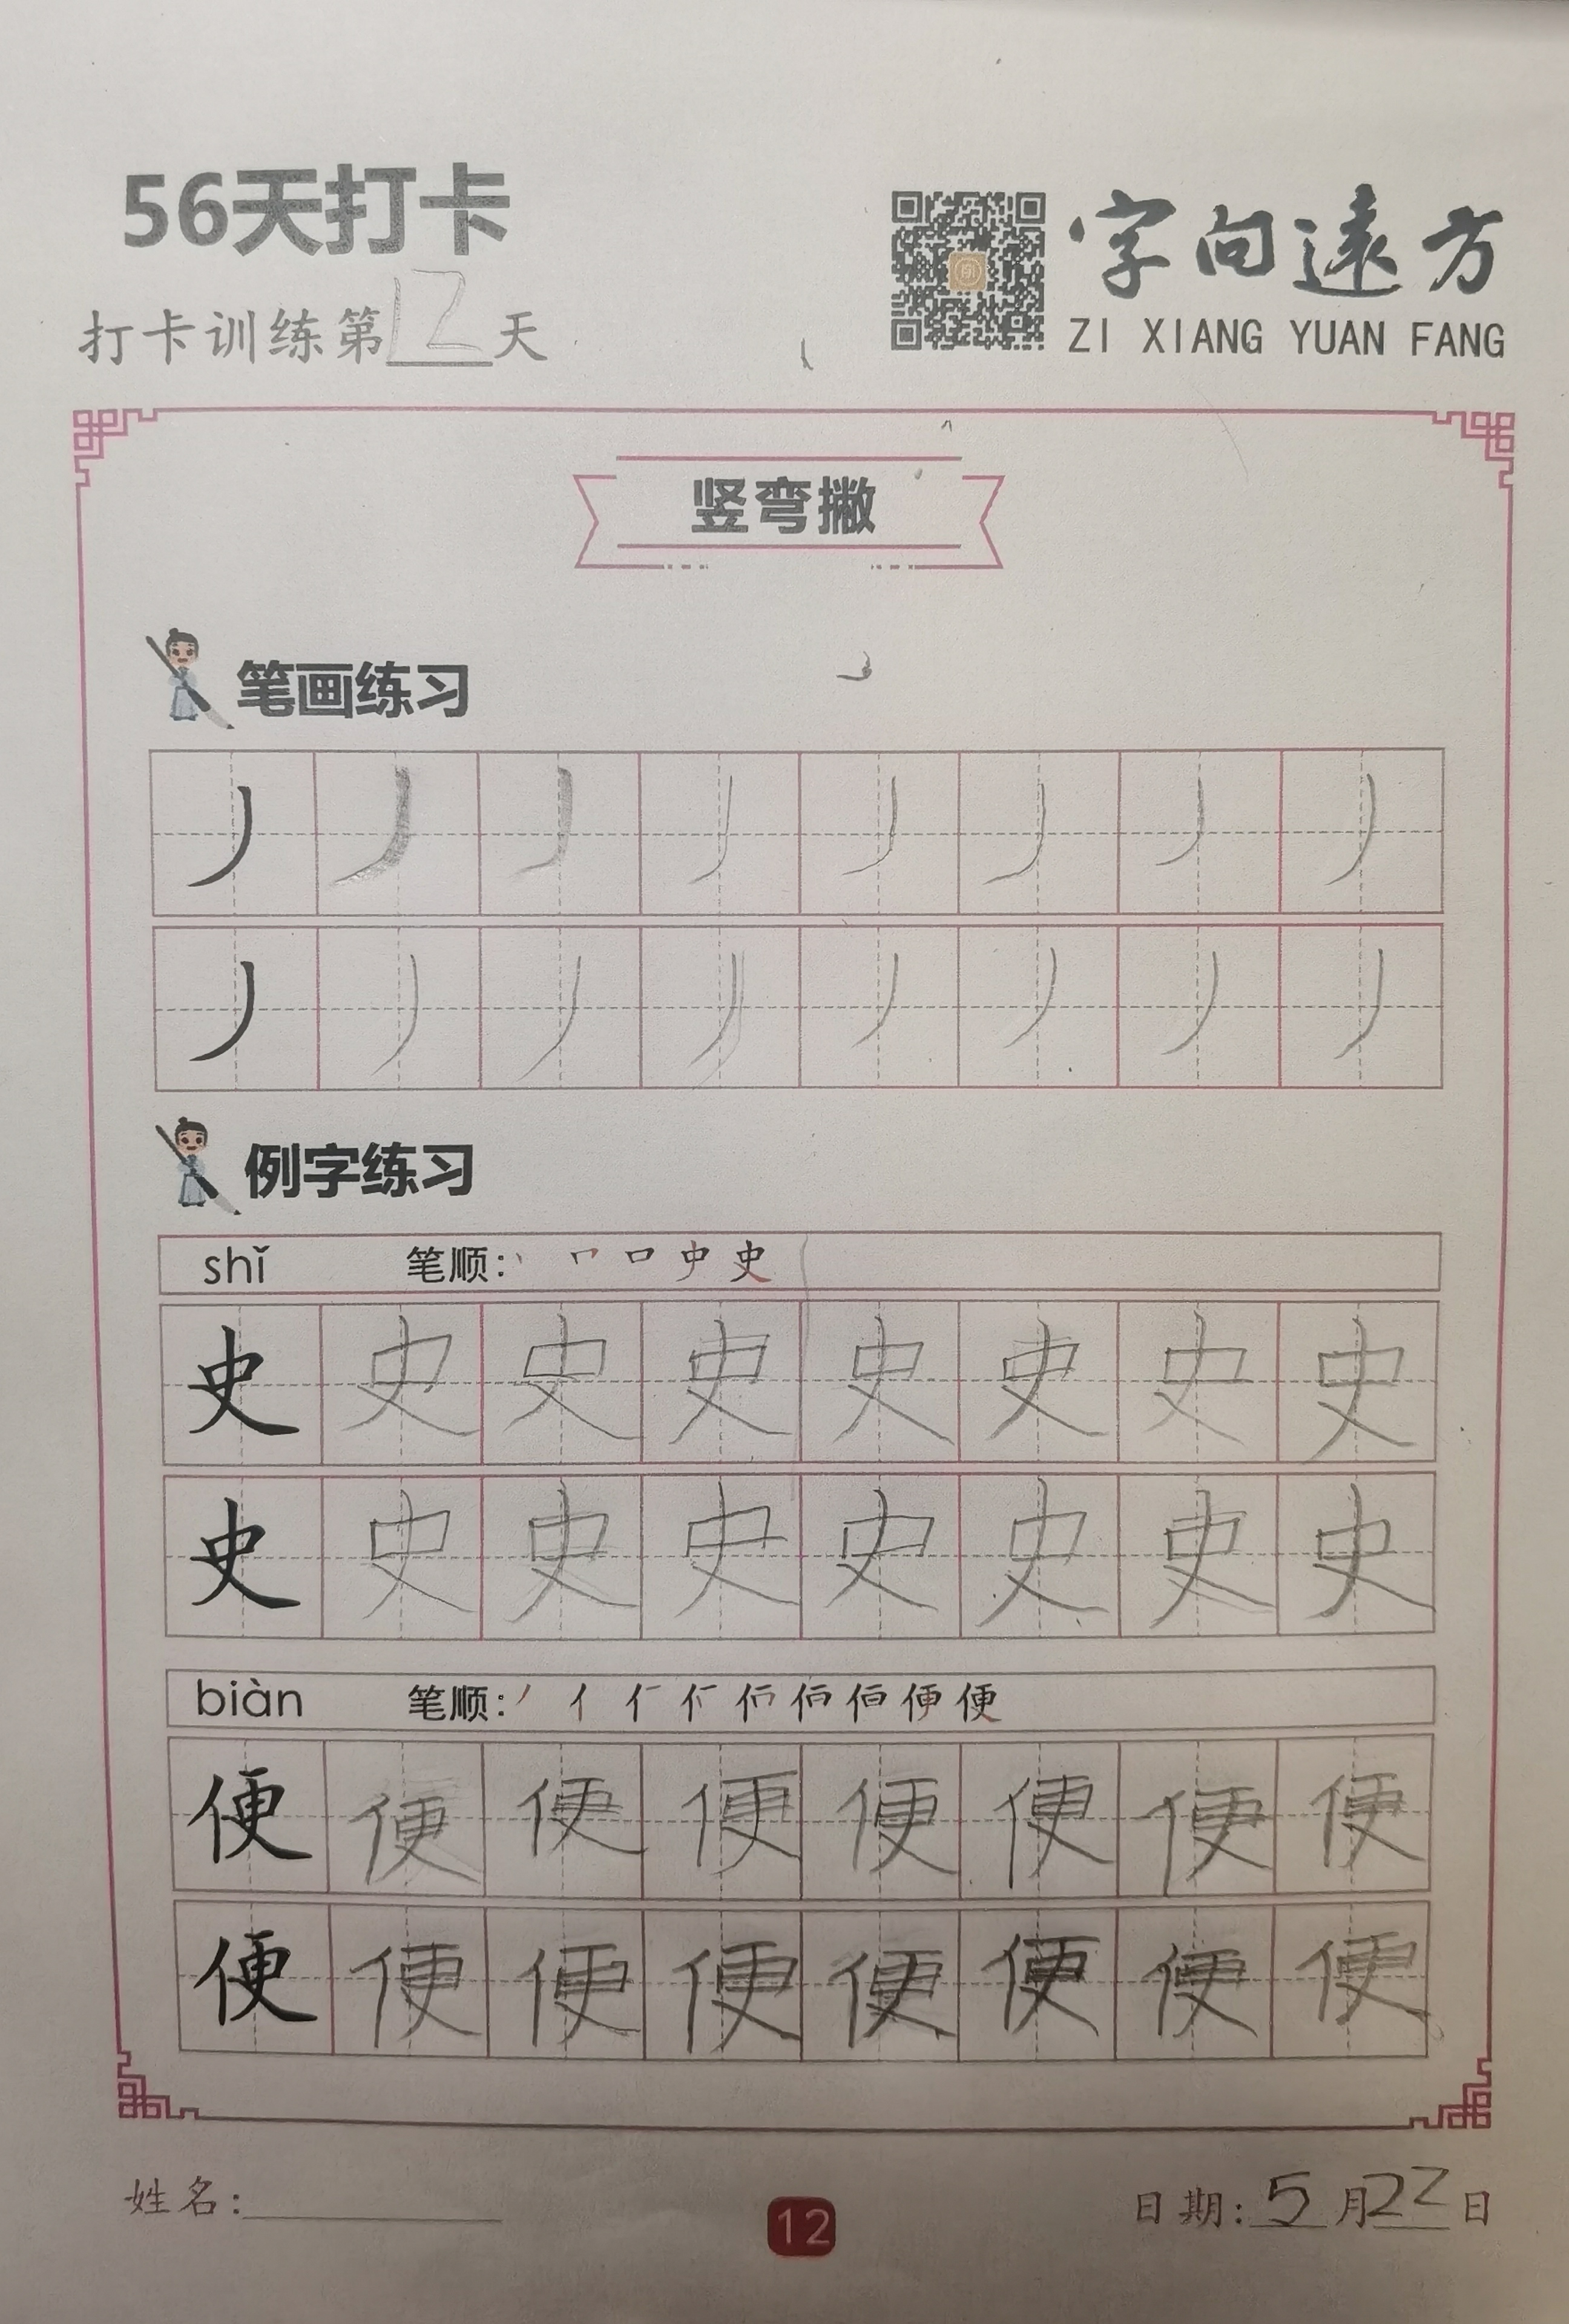 56天打卡
打卡训练第12天
字向遠方
ZI XIANG YUAN FANG
竖弯撇
笔画练习
丿 丿 丿 丿 丿 丿 丿 丿
丿 丿 丿 丿 丿 丿 丿 丿
例字练习
shǐ 笔顺: 丨 𠃍 口 史 史
史 史 史 史 史 史 史 史
史 史 史 史 史 史 史 史
biàn 笔顺: 丿 亻 便 便
便 便 便 便 便 便 便 便
便 便 便 便 便 便 便 便
姓名:
12
日期:5月22日